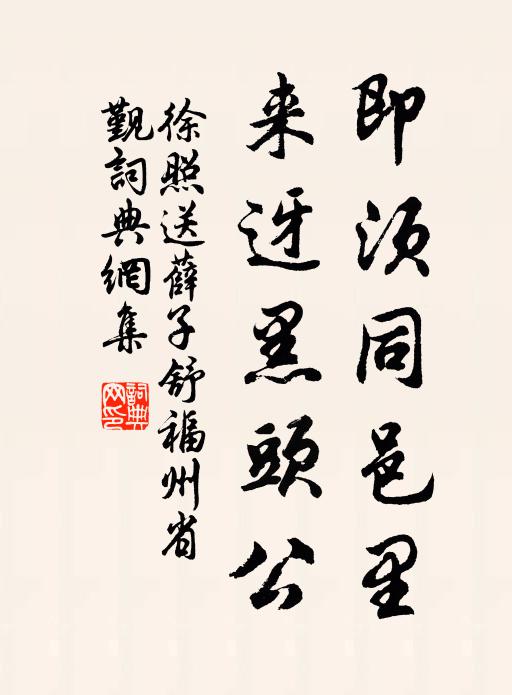 即須同邑里
来迓黑頭公
徐照送薛子舒福州省
觐詞典網集
詞典网印